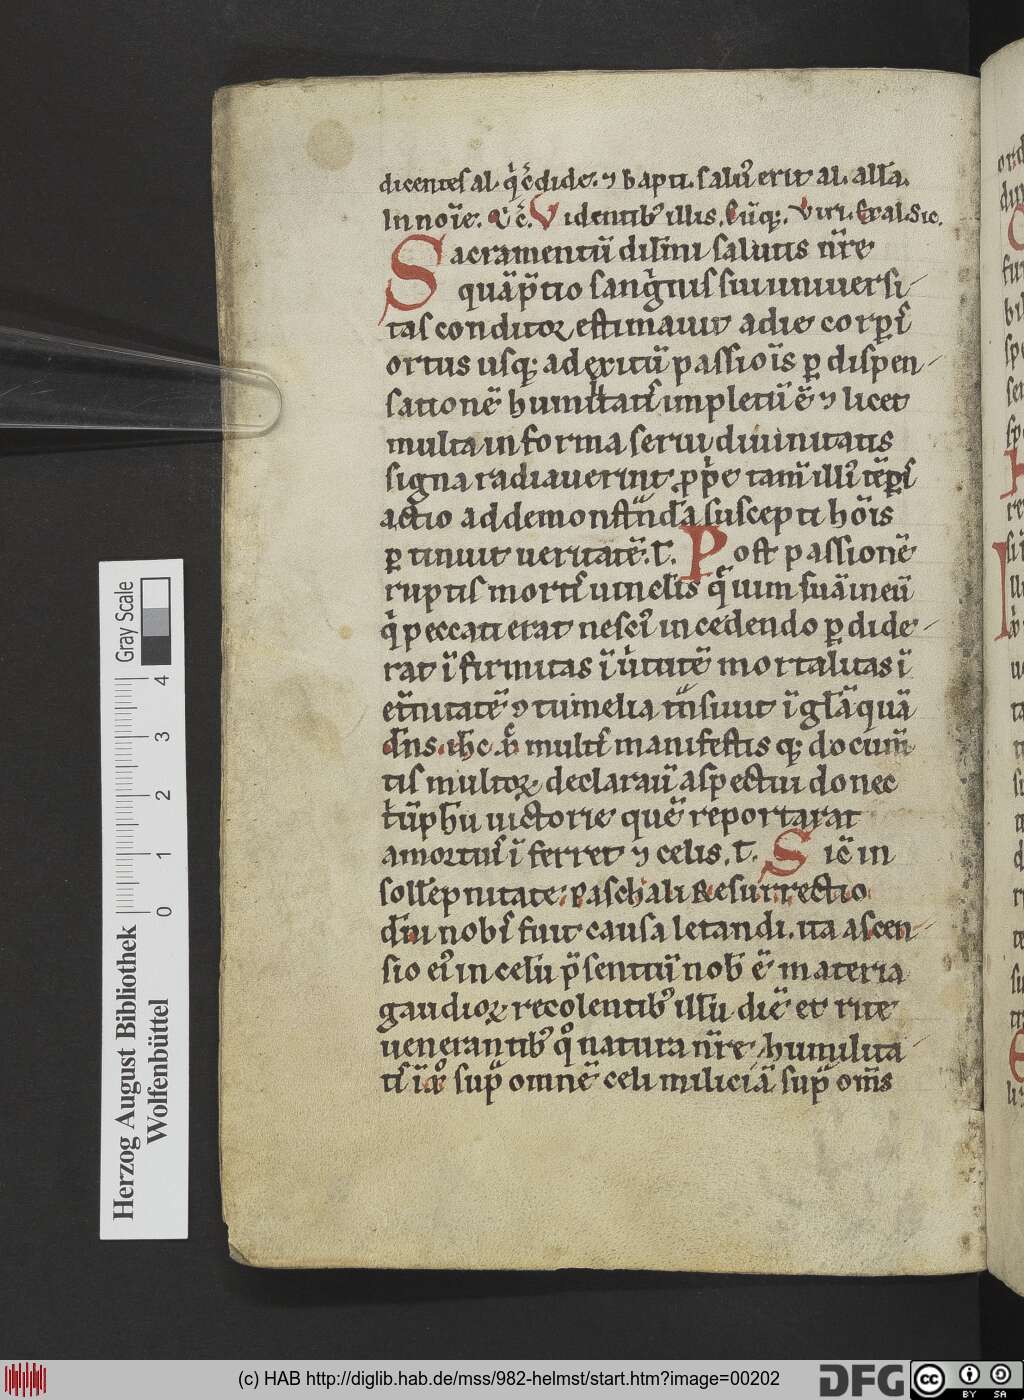 dicentes al. q̇ c̄dide. ⁊ bapti. saluꝰ erit al. all̄a.
In noīe. ⁊c̄. Videntibꝰ illis. Cūq;. Viri. Et al. Sic.
Sacramentū diīni salutis n̄re
quā p̄tio sangˈnis sui uniuersi-
tas conditoꝛ estimauit a die corꝑis
ortus usq; ad exitū passiōis ꝑ dispen-
sationē humilitatis impletū ē ⁊ licet
multa in forma serui diuinitatis
signa radiauerint ꝓpˈe tam̄ illiꝰ tēꝑis
actio ad demonst̄nda suscepti hōis
ꝑtinuit ueritatē. T. Post passionē
ruptis mortis uinclis quū suā in eū
qˈ peccati erat nesciꝰ incedendo ꝑdide-
rat īfirmitas ī uˈtutē mortalitas ī
et̄nitatē ⁊tumelia t̄nsiuit ī gl̄a quā
dn̄s ihc xp̄c multis manifestisq; docum̄
tis multoꝝ declarauˈ aspectui donec
tˈūphū uictorie quē reportarat
a mortuis īferret ⁊ celis. T. Sic̄ in
soll̄epnitate Paschali Resurrectio
dn̄i nobis fuit causa letandi. ita ascen-
sio eiꝰ in celū p̄sentiū nob̄ ē materia
gaudioꝝ recolentibꝰ illū diē et rite
uenerantibꝰ qͦ natura n̄re humilita-
tis ī xͦ supͣ omnē celi miliciā supͣ om̄s
Herzog August Bibliothek
Wolfenbüttel
0 1 2 3 4
Gray Scale
(c) HAB http://diglib.hab.de/mss/982-helmst/start.htm?image=00202
DFG
cc BY SA